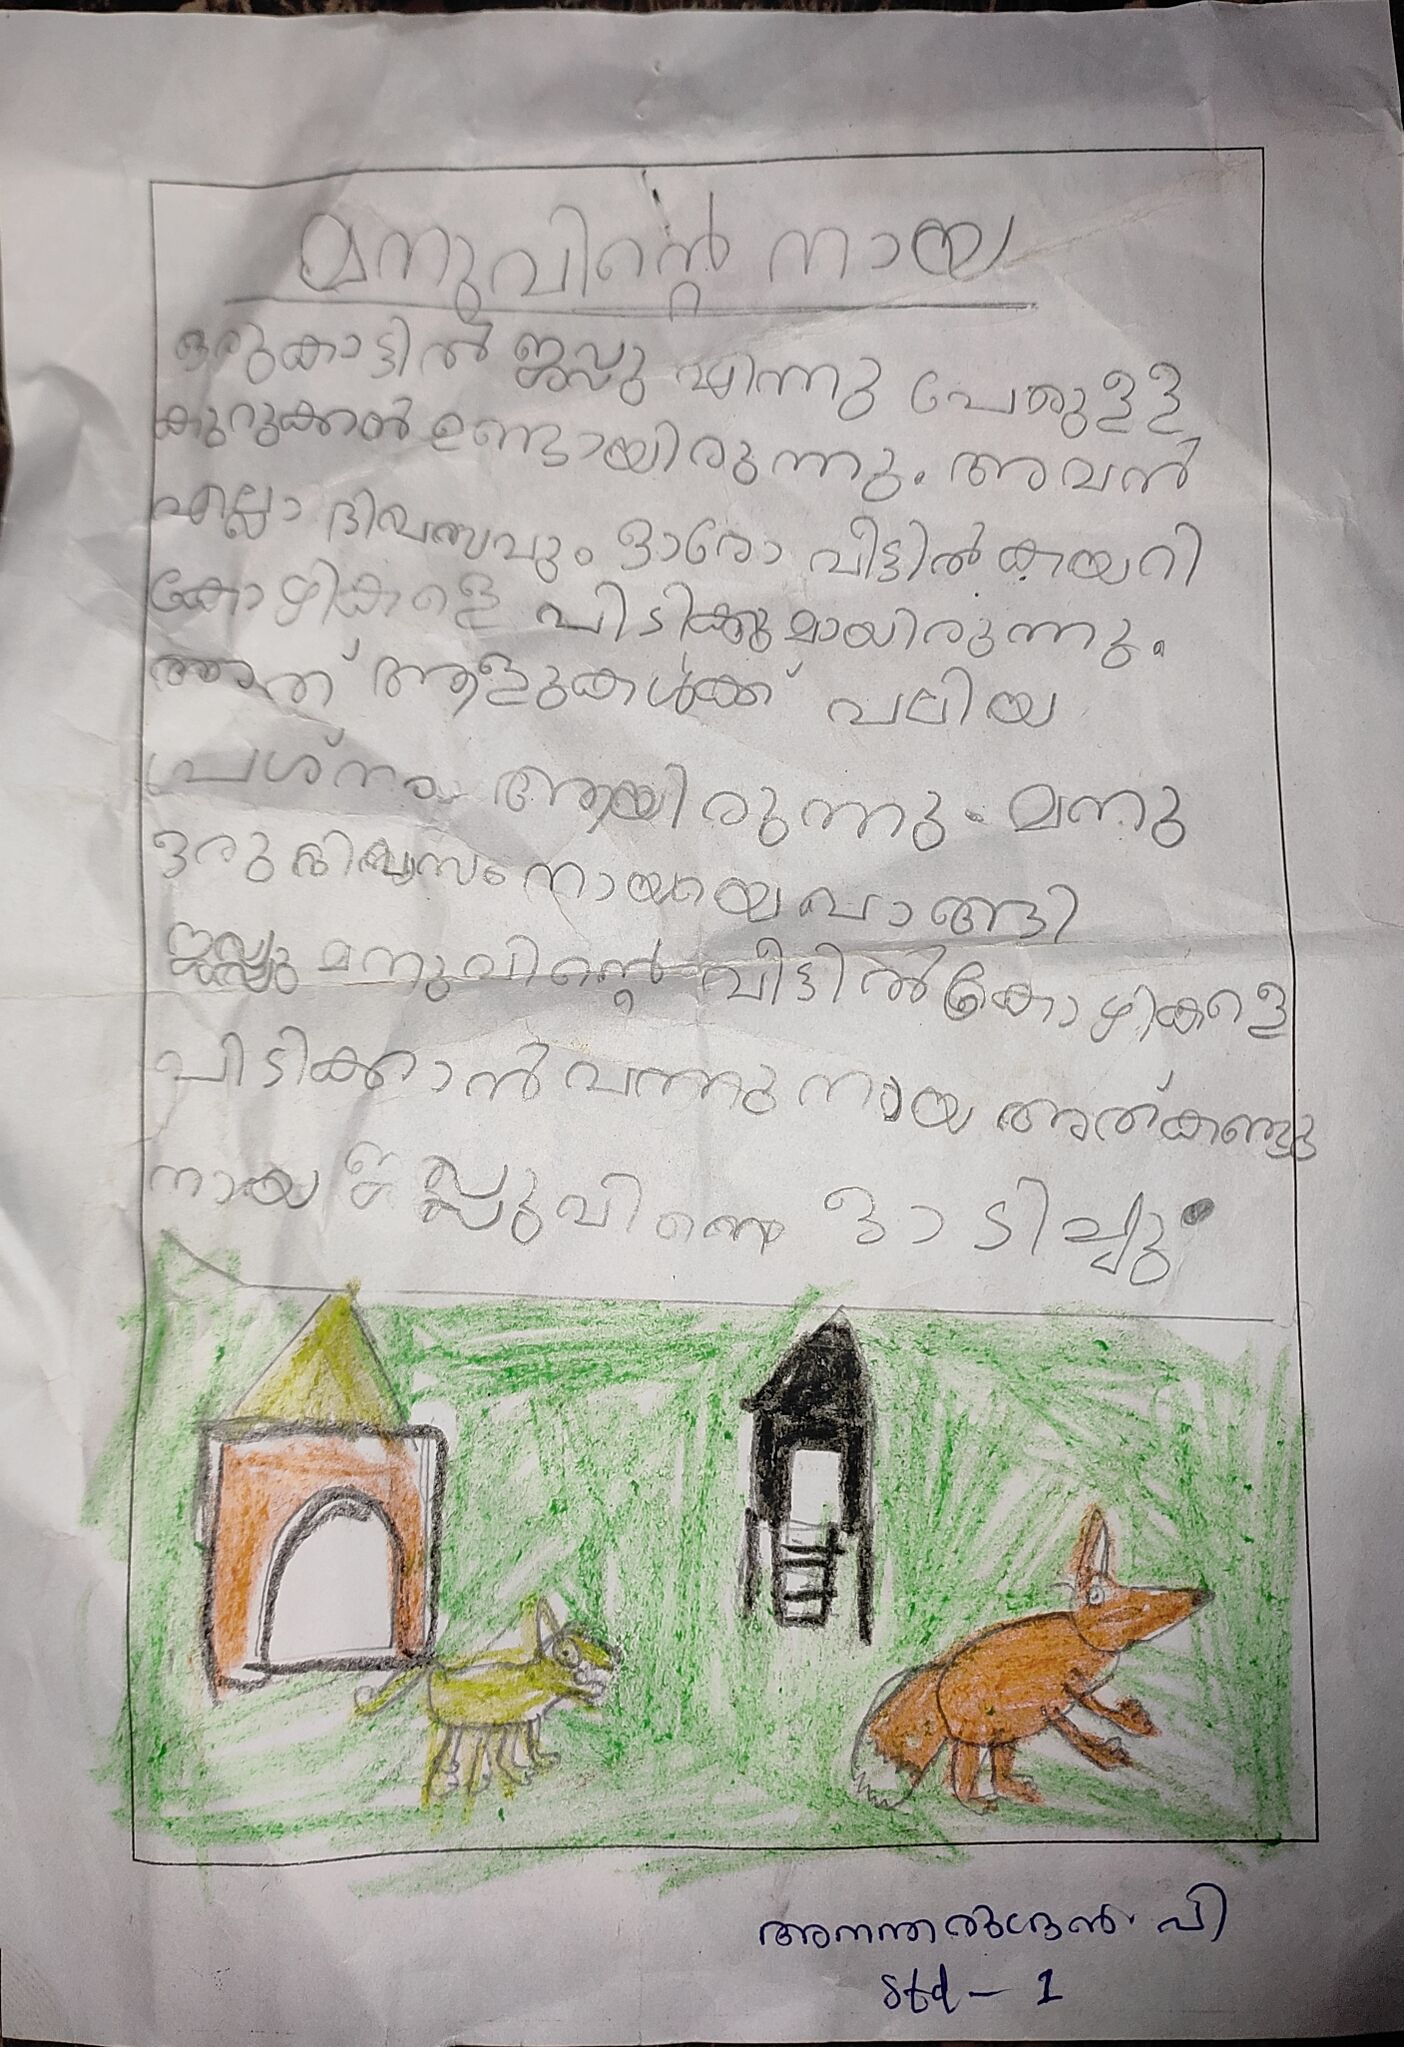 മനുവിന്റെ നായ
ഒരുകാട്ടിൽ ജപ്പു എന്നു പേരുള്ള
കുറുക്കൻ ഉണ്ടായിരുന്നു. അവൻ
എല്ലാ ദിവസവും ഓരോ വീട്ടിൽകയറി
കോഴികളെ പിടിക്കുമായിരുന്നു.
അത് ആളുകൾക്ക് വലിയ
പ്രശ്നം ആയിരുന്നു. മനു
ഒരു ദിവസം നായയെ വാങ്ങി
മനുവിന്റെ വീട്ടിൽ കോഴികളെ
പിടിക്കാൻ വന്നു നായ അത്കണ്ടു
നായ ഓടിച്ചു.
പി
Std - 1